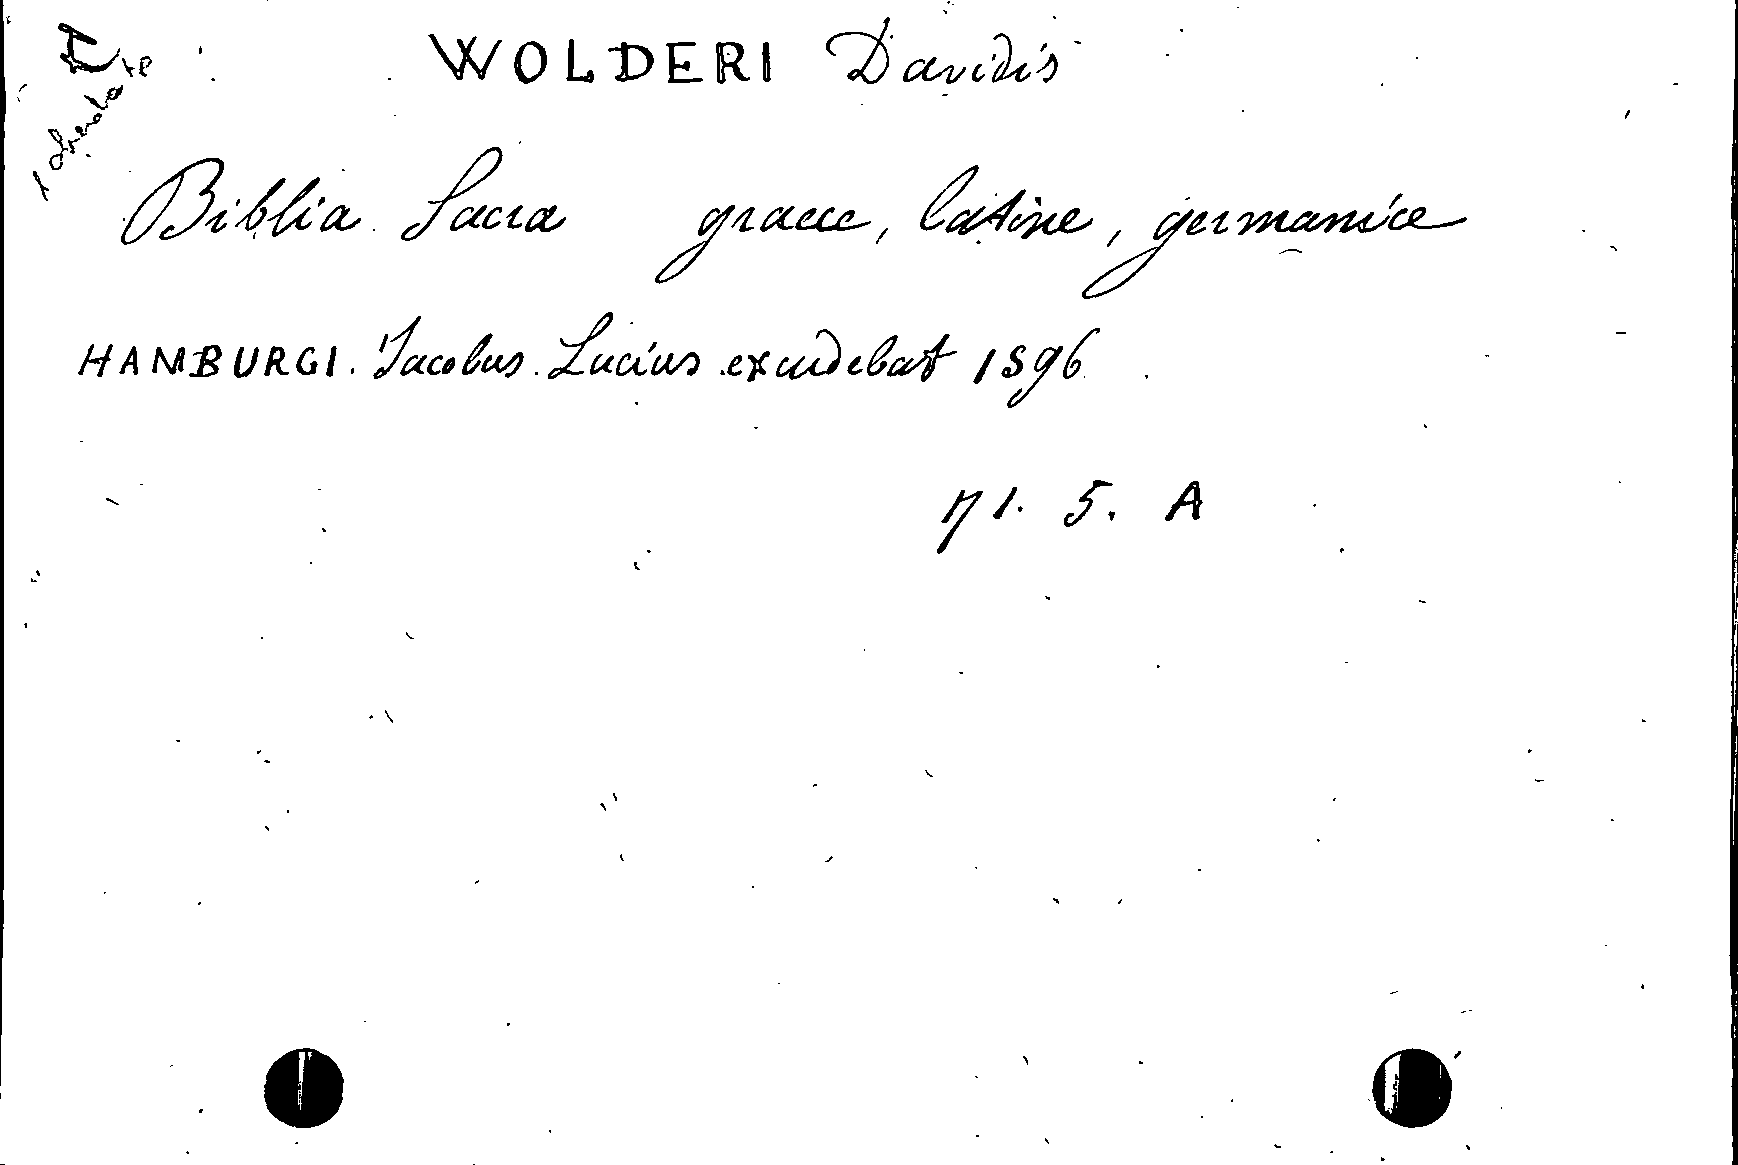 WOLDERI Davidis
Biblia Sacra graece, latine, germanice
HAMBURGI. Jacobus Lucius excudebat 1596
71. 5. A